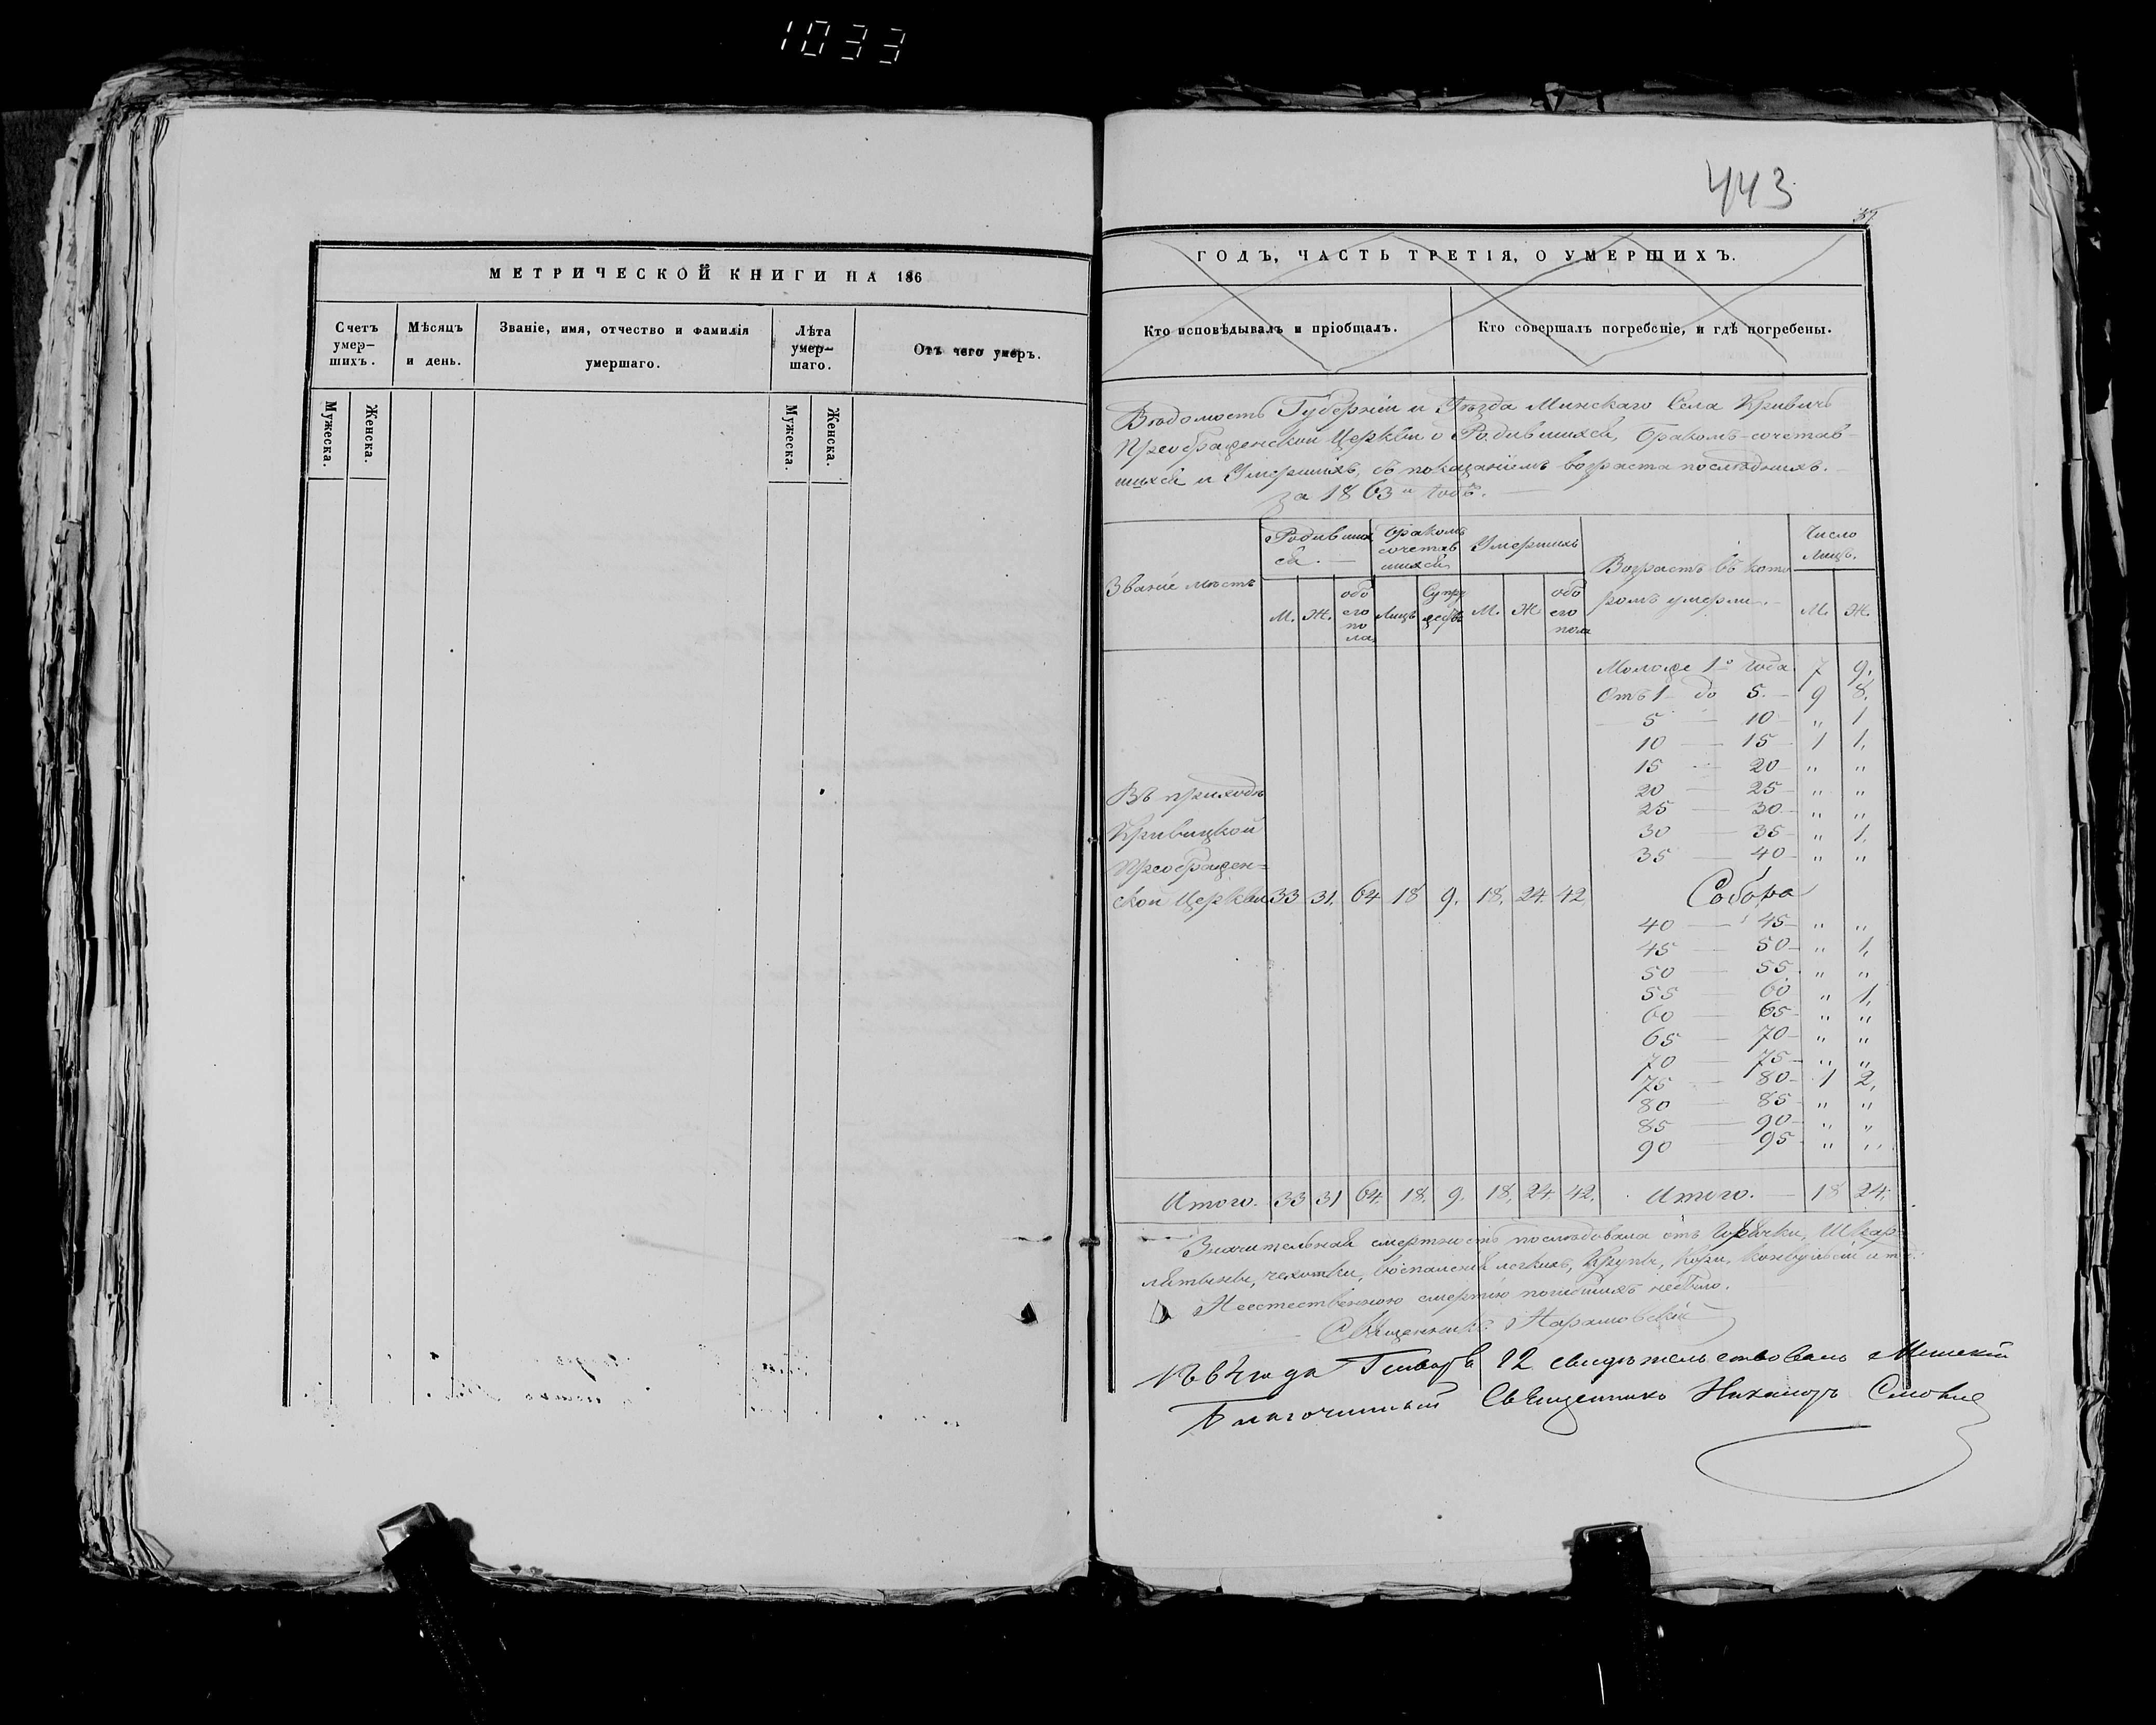 1033
МЕТРИЧЕСКОЙ КНИГИ НА 186
Счетъ умер-шихъ.
Мѣсяцъ и день.
Званіе, имя, отчество и фамилія умершаго.
Лѣта умер-шаго.
Отъ чего умеръ.
Мужеска.
Женска.
Мужеска.
Женска.
443
ГОДЪ, ЧАСТЬ ТРЕТІЯ, О УМЕРШИХЪ.
Кто исповѣдывалъ и пріобщалъ.
Кто совершалъ погребеніе, и гдѣ погребены.
Вѣдомость Губерніи и Уѣзда Минскаго Села Кривичъ
Преображенской Церкви о Родившихся, бракомъ-сочетав-
шихся и Умершихъ, съ показаніемъ возраста послѣднихъ.
за 1863й годъ.
Званіе мѣстъ
Родивших ся.
бракомъ сочетав шихся
Умершихъ
Возрастъ въ кото ромъ умерли.
Число лицъ.
М. Ж. обо его по ла
Лицъ Супру жествъ
М. Ж. обо его пола
М. Ж.
Моложе 1го года 7 9.
Отъ 1 до 5. 9 8.
5 — 10 „ 1
10 — 15 1 1.
15 — 20 „ „
20 — 25 „ „
25 — 30 „ „
30 — 35 „ 1.
35 — 40 „ „
Въ приходѣ
Кривицкой
Преображен=
ской Церкви 33 31. 64 18 9. 18. 24. 42
Собора
40 — 45 „ „
45 — 50 „ 1.
50 — 55 „ „
55 — 60 „ 1.
60 — 65 „ „
65 — 70 „ „
70 — 75 „ „
75 — 80 1 2.
80 — 85 „ „
85 — 90 „ „
90 — 95 „ „
Итого. 33 31 64. 18. 9. 18. 24 42. Итого. — 18 24.
Значительная смертность послѣдовала отъ Горячки, Шкар-
лятины, чехотки, воспаленія легкихъ, Крупы, Кори, конвульсій и т.
Неестественною смертію погибшихъ небыло.
Священникъ Нарановскій
1864 года Генваря 12 свидѣтельствовалъ Минскій
Благочинный Священникъ Никаноръ